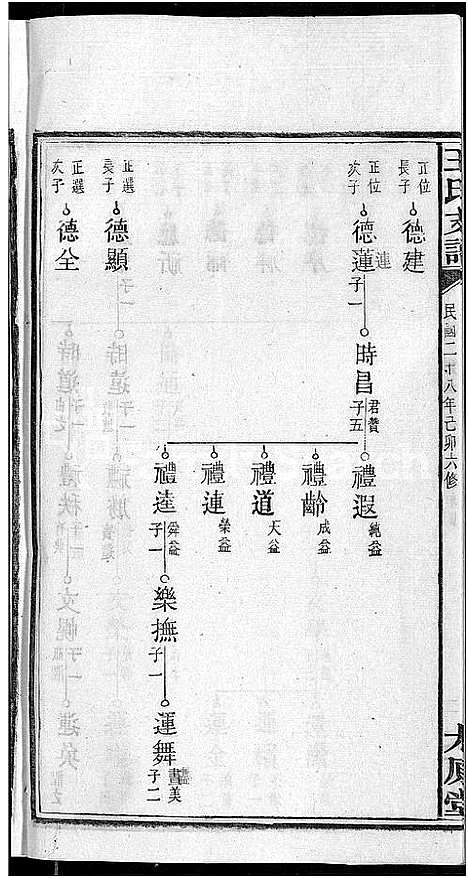 王氏支譜
民國二十八年己卯六修
大原堂
正位
長子
德建
正位
次子
德蓮
連
子一
時昌
君贊
子五
禮遐
純益
禮齡
成益
禮道
天益
禮連
榮益
禮逵
舜益
子一
樂撫
子一
運舞
畫美
子二
正選
長子
德顯
正選
次子
德全